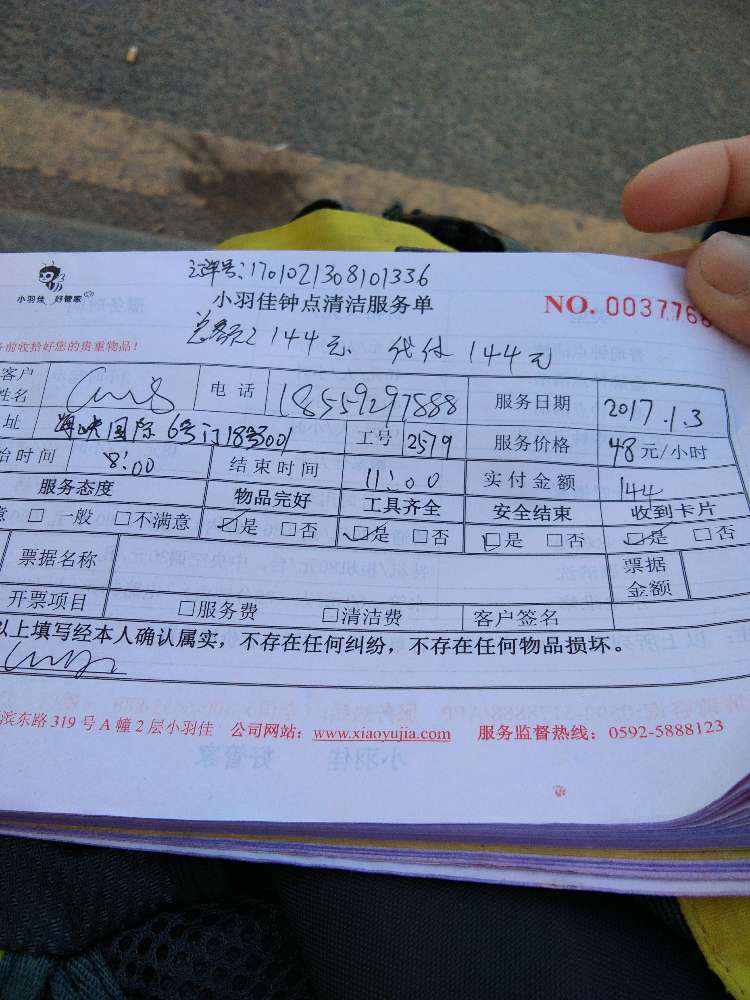 订单号:1701021308101336
小羽佳 好管家
小羽佳钟点清洁服务单
NO. 003776
前收拾好您的贵重物品!
总客页 144元 代付 144元
客户姓名 电话 18559291888 服务日期 2017.1.3
址 海峡国际6号门18号3001 工号 2579 服务价格 48元/小时
始时间 8:00 结束时间 11:00 实付金额 144
服务态度 物品完好 工具齐全 安全结束 收到卡片
意 □一般 □不满意 ☑是 □否 ☑是 □否 ☑是 □否 ☑是 □否
票据名称 票据金额
开票项目 □服务费 □清洁费 客户签名
以上填写经本人确认属实,不存在任何纠纷,不存在任何物品损坏。
滨东路319号A幢2层小羽佳 公司网站:www.xiaoyujia.com 服务监督热线:0592-5888123